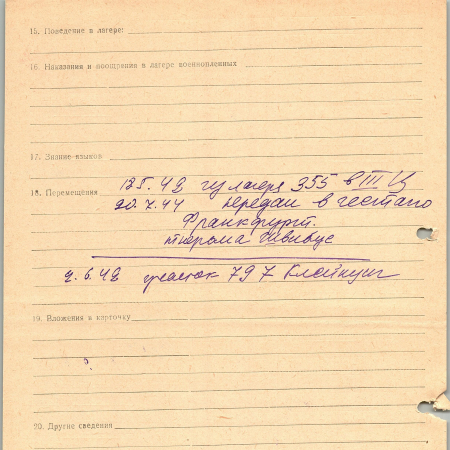 15. Поведение в лагере:
16. Наказания и поощрения в лагере военнопленных
17. Знание языков
18. Перемещения 12.5.42 из лагеря 355 в III Ц
20.7.44 передан в гестапо
Франкфурт.
тюрьма
2.6.42 участок 797
19. Вложения в карточку
20. Другие сведения